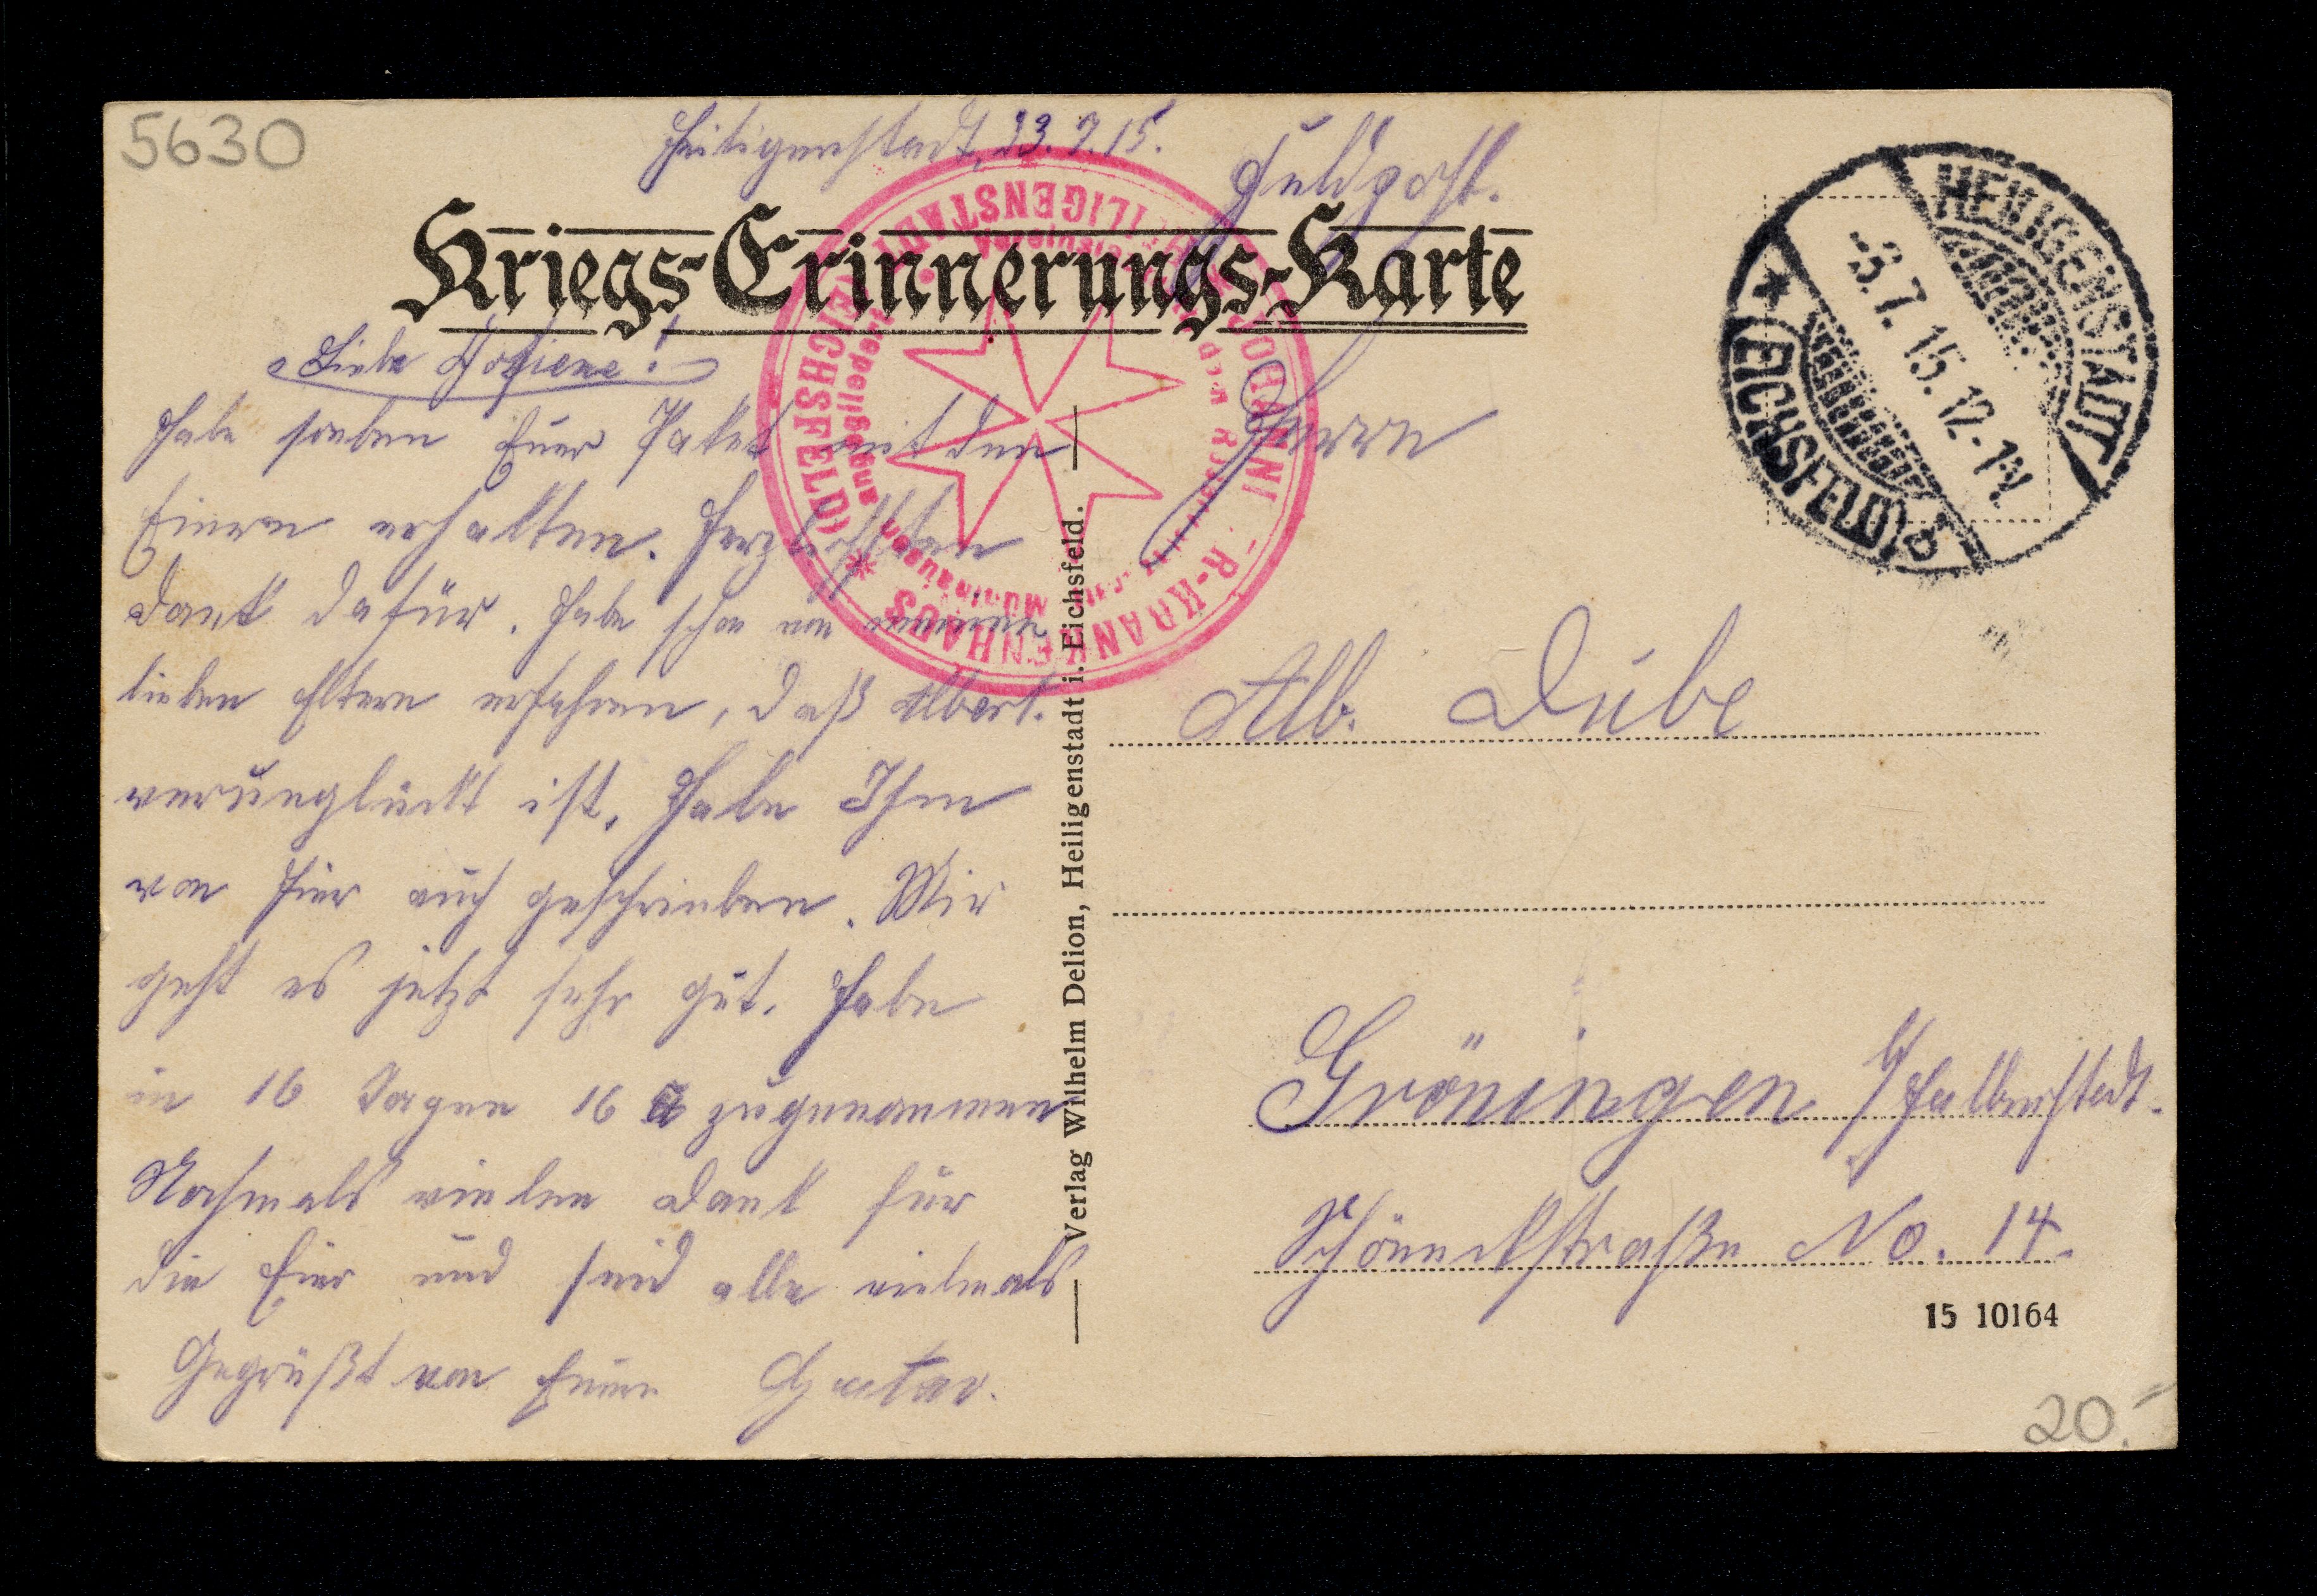 5630
Heiligenstadt, 23.7.15.
Feldpost.
Kriegs-Erinnerungs-Karte
HEILIGENSTADT
-3.7.15.12-1N.
* (EICHSFELD) b
JOHANNI R-KRANKENHAUS HEILIGENSTADT (EICHSFELD) *
Liebe
Habe soeben Euer Paket mit den
Eiern erhalten. Herzlichsten
Dank dafür. Habe schon von meinen
lieben Eltern erfahren, daß Albert.
verunglückt ist. Habe Ihm
von hier auch geschrieben. Mir
geht es jetzt sehr gut. Habe
in 16 Tagen 16 ℔ zugenommen
Nochmals vielen Dank für
die Eier und seid alle vielmals
Gegrüßt von Euren Gustav.
Verlag Wilhelm Delion, Heiligenstadt i. Eichsfeld.
Herrn
Alb. Dube
Gröningen b/Halberstadt.
No. 14.
15 10164
20.-